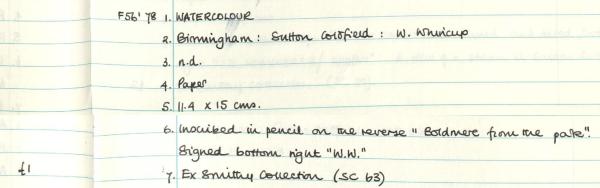 F56' 78 1. WATERCOLOUR
2. Birmingham: Sutton Coldfield: W. Whincup
3. n.d.
4. Paper
5. 11.4 x 15 cms.
6. Inscribed in pencil on the reverse "Boldmere from the park".
Signed bottom right "W.W."
£1 7. Ex Smithy Collection (SC 63)